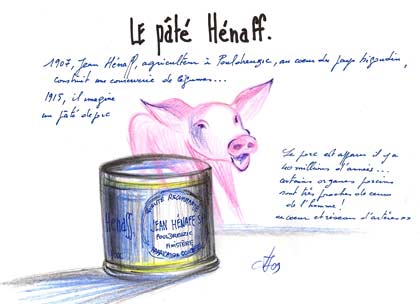 Le pâté Hénaff.
1907, Jean Hénaff, agriculteur à Pouldreuzic, au cœur du pays bigouden,
construit une conserverie de légumes...
1915, il imagine
un pâté de porc
Le porc est apparu il y a
40 millions d'années...
certains organes porcins
sont très proches de ceux
de l'homme !
Hénaff
JEAN HÉNAFF S
POULDREUZIC
FINISTÈRE